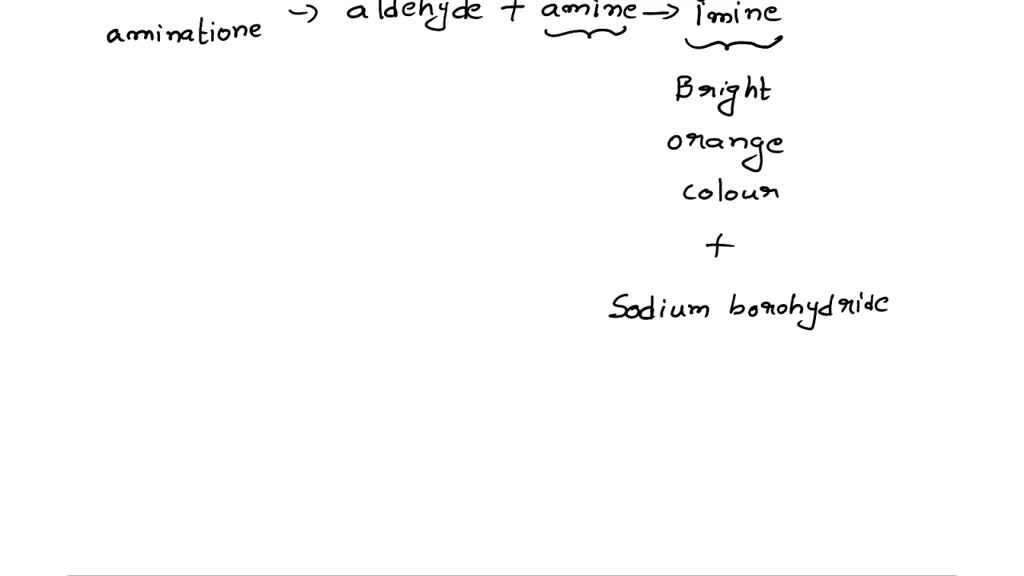 aminatione → aldehyde + amine → imine
Bright
orange
colour
+
Sodium borohydride